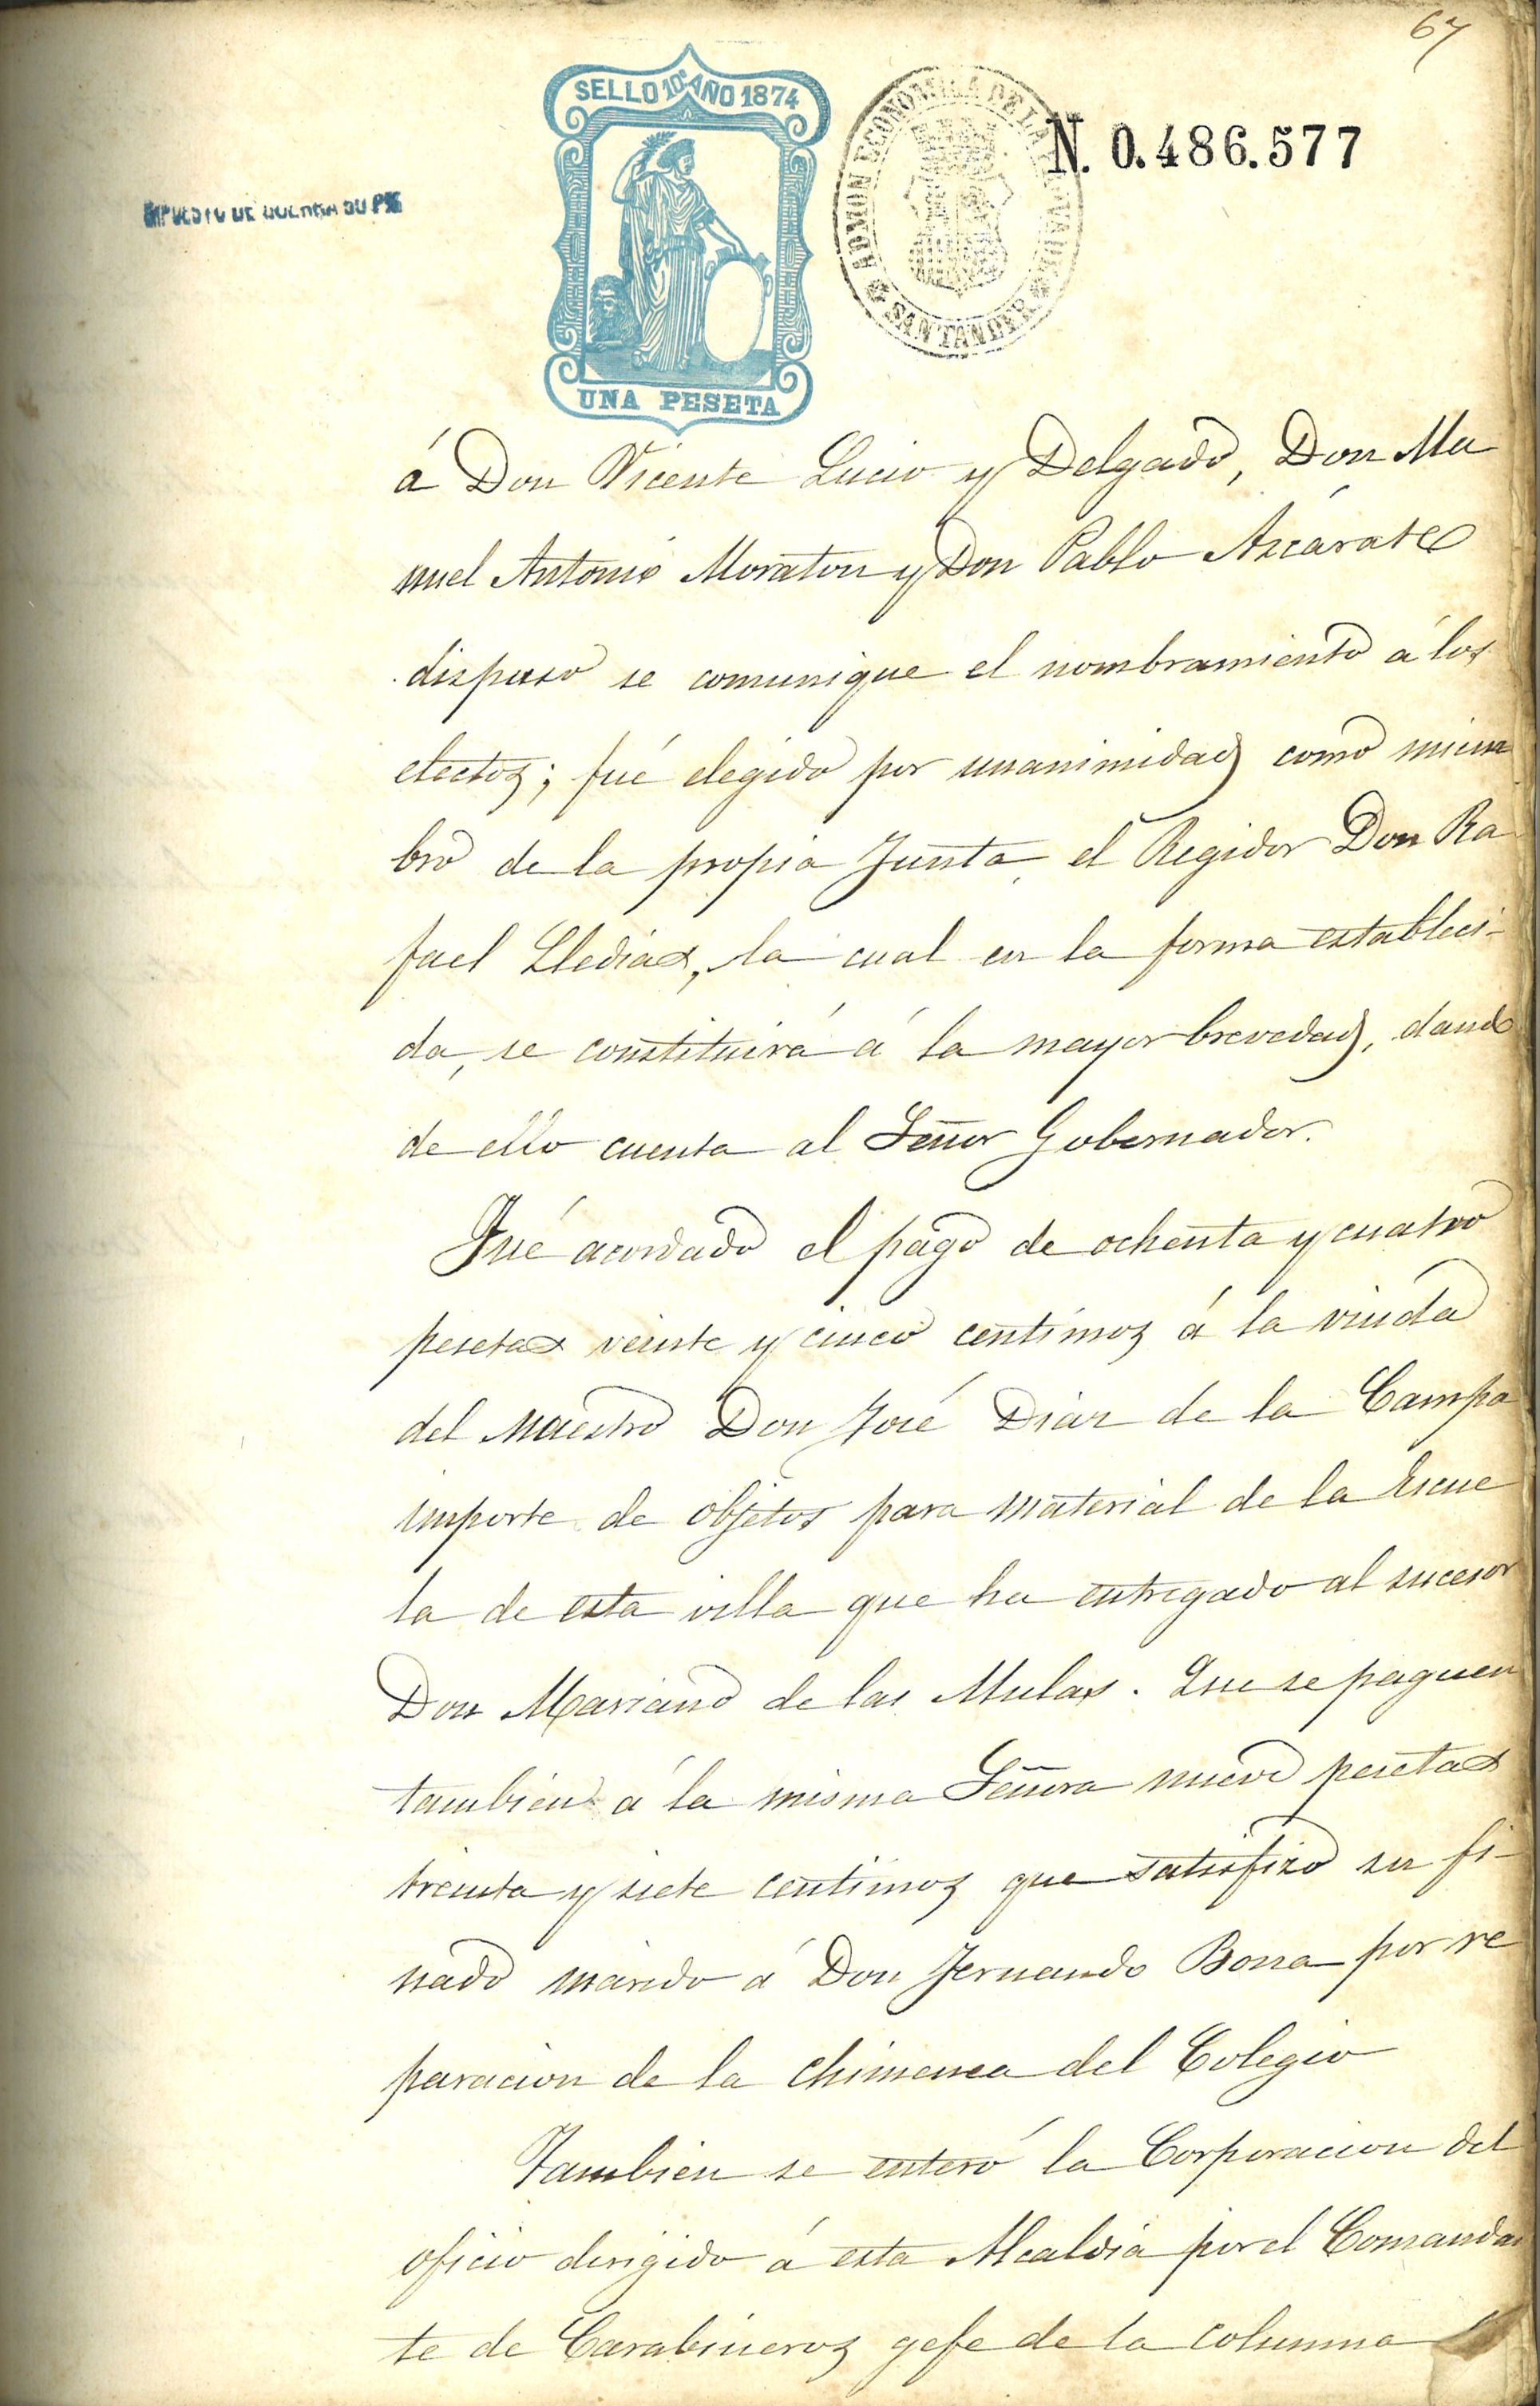 67
SELLO 10º AÑO 1874
ADMON ECONOMICA DE LA
SANTANDER
N. 0.486.577
IMPUESTO DE GUERRA 50 
UNA PESETA
á Don Vicente Lucio y Delgado, Don Ma
nuel Antonio Moraton y Don Pablo Azcárate
dispuso se comunique el nombramiento á los
electos; fué elegido por unanimidad como miem
bro de la propia Junta el Regidor Don Ra
fael Lledias, la cual en la forma estableci-
da, se constituirá á la mayor brevedad, dando
de ello cuenta al Señor Gobernador.
Fué acordado el pago de ochenta y cuatro
pesetas veinte y cinco centimos á la viuda
del Maestro Don José Diaz de la Campa
importe de objetos para material de la Escue
la de esta villa que ha entregado al sucesor
Don Mariano de las Mulas. Que se paguen
tambien á la misma Señora nueve pesetas
treinta y siete centimos que satisfizo su fi-
nado marido á Don Fernando Bona por re
paracion de la chimenea del Colegio
Tambien se enteró la Corporacion del
oficio dirigido á esta Alcaldia por el Comandan
te de Carabineros gefe de la columna